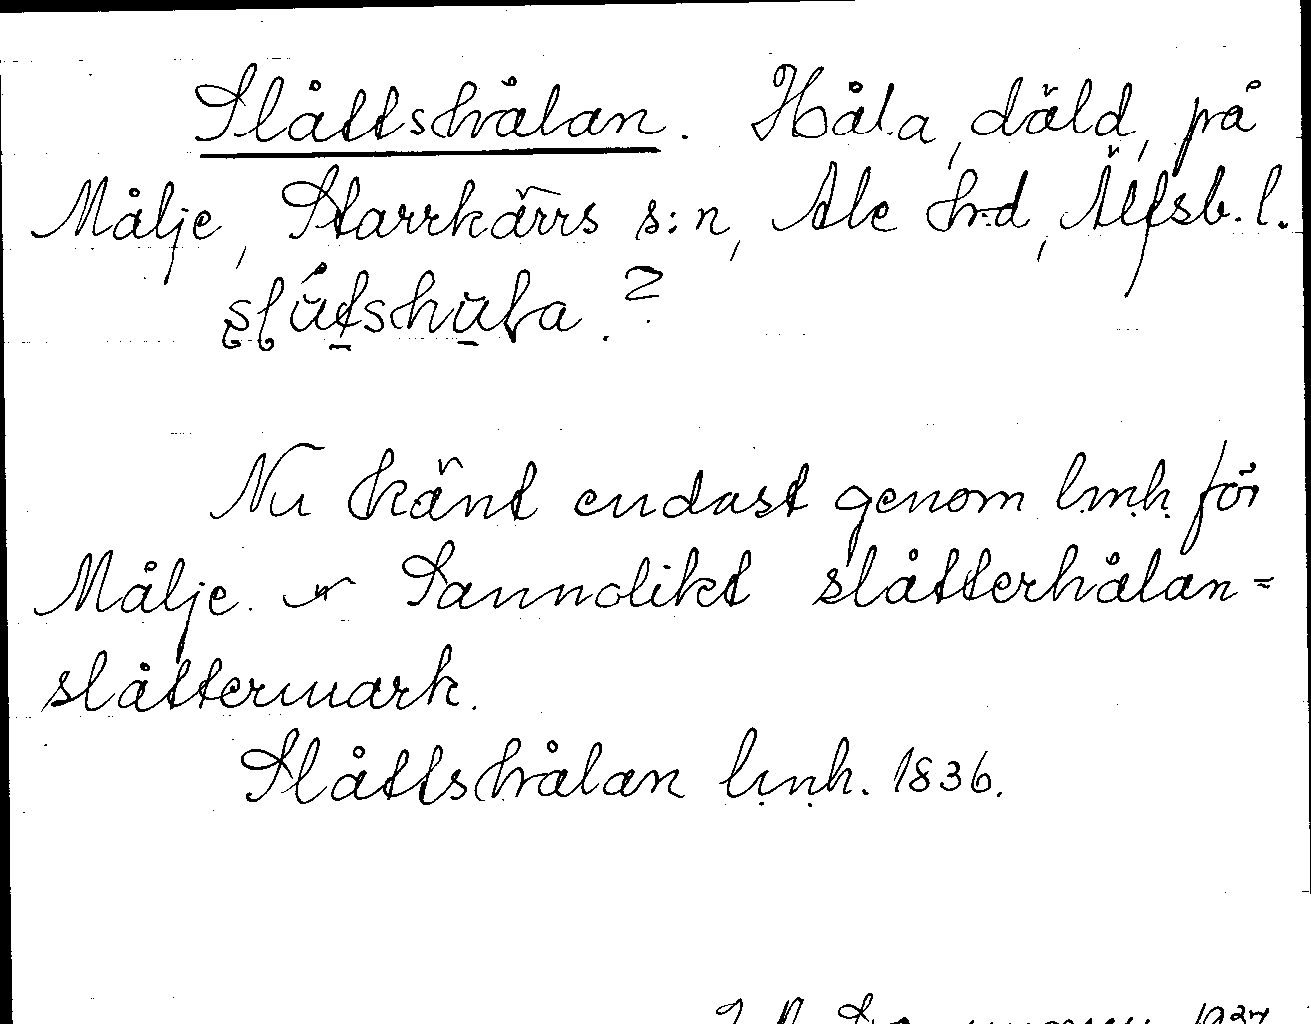 Slåttshålan. Håla, däld, på
Målje, Starrkärrs s:n, Ale hrd, Älfsb. l.
Nu känt endast genom l.m.h. för
Målje. Sannolikt slåtterhålan =
slåttermark.
Slåttshålan l.m.h. 1836.